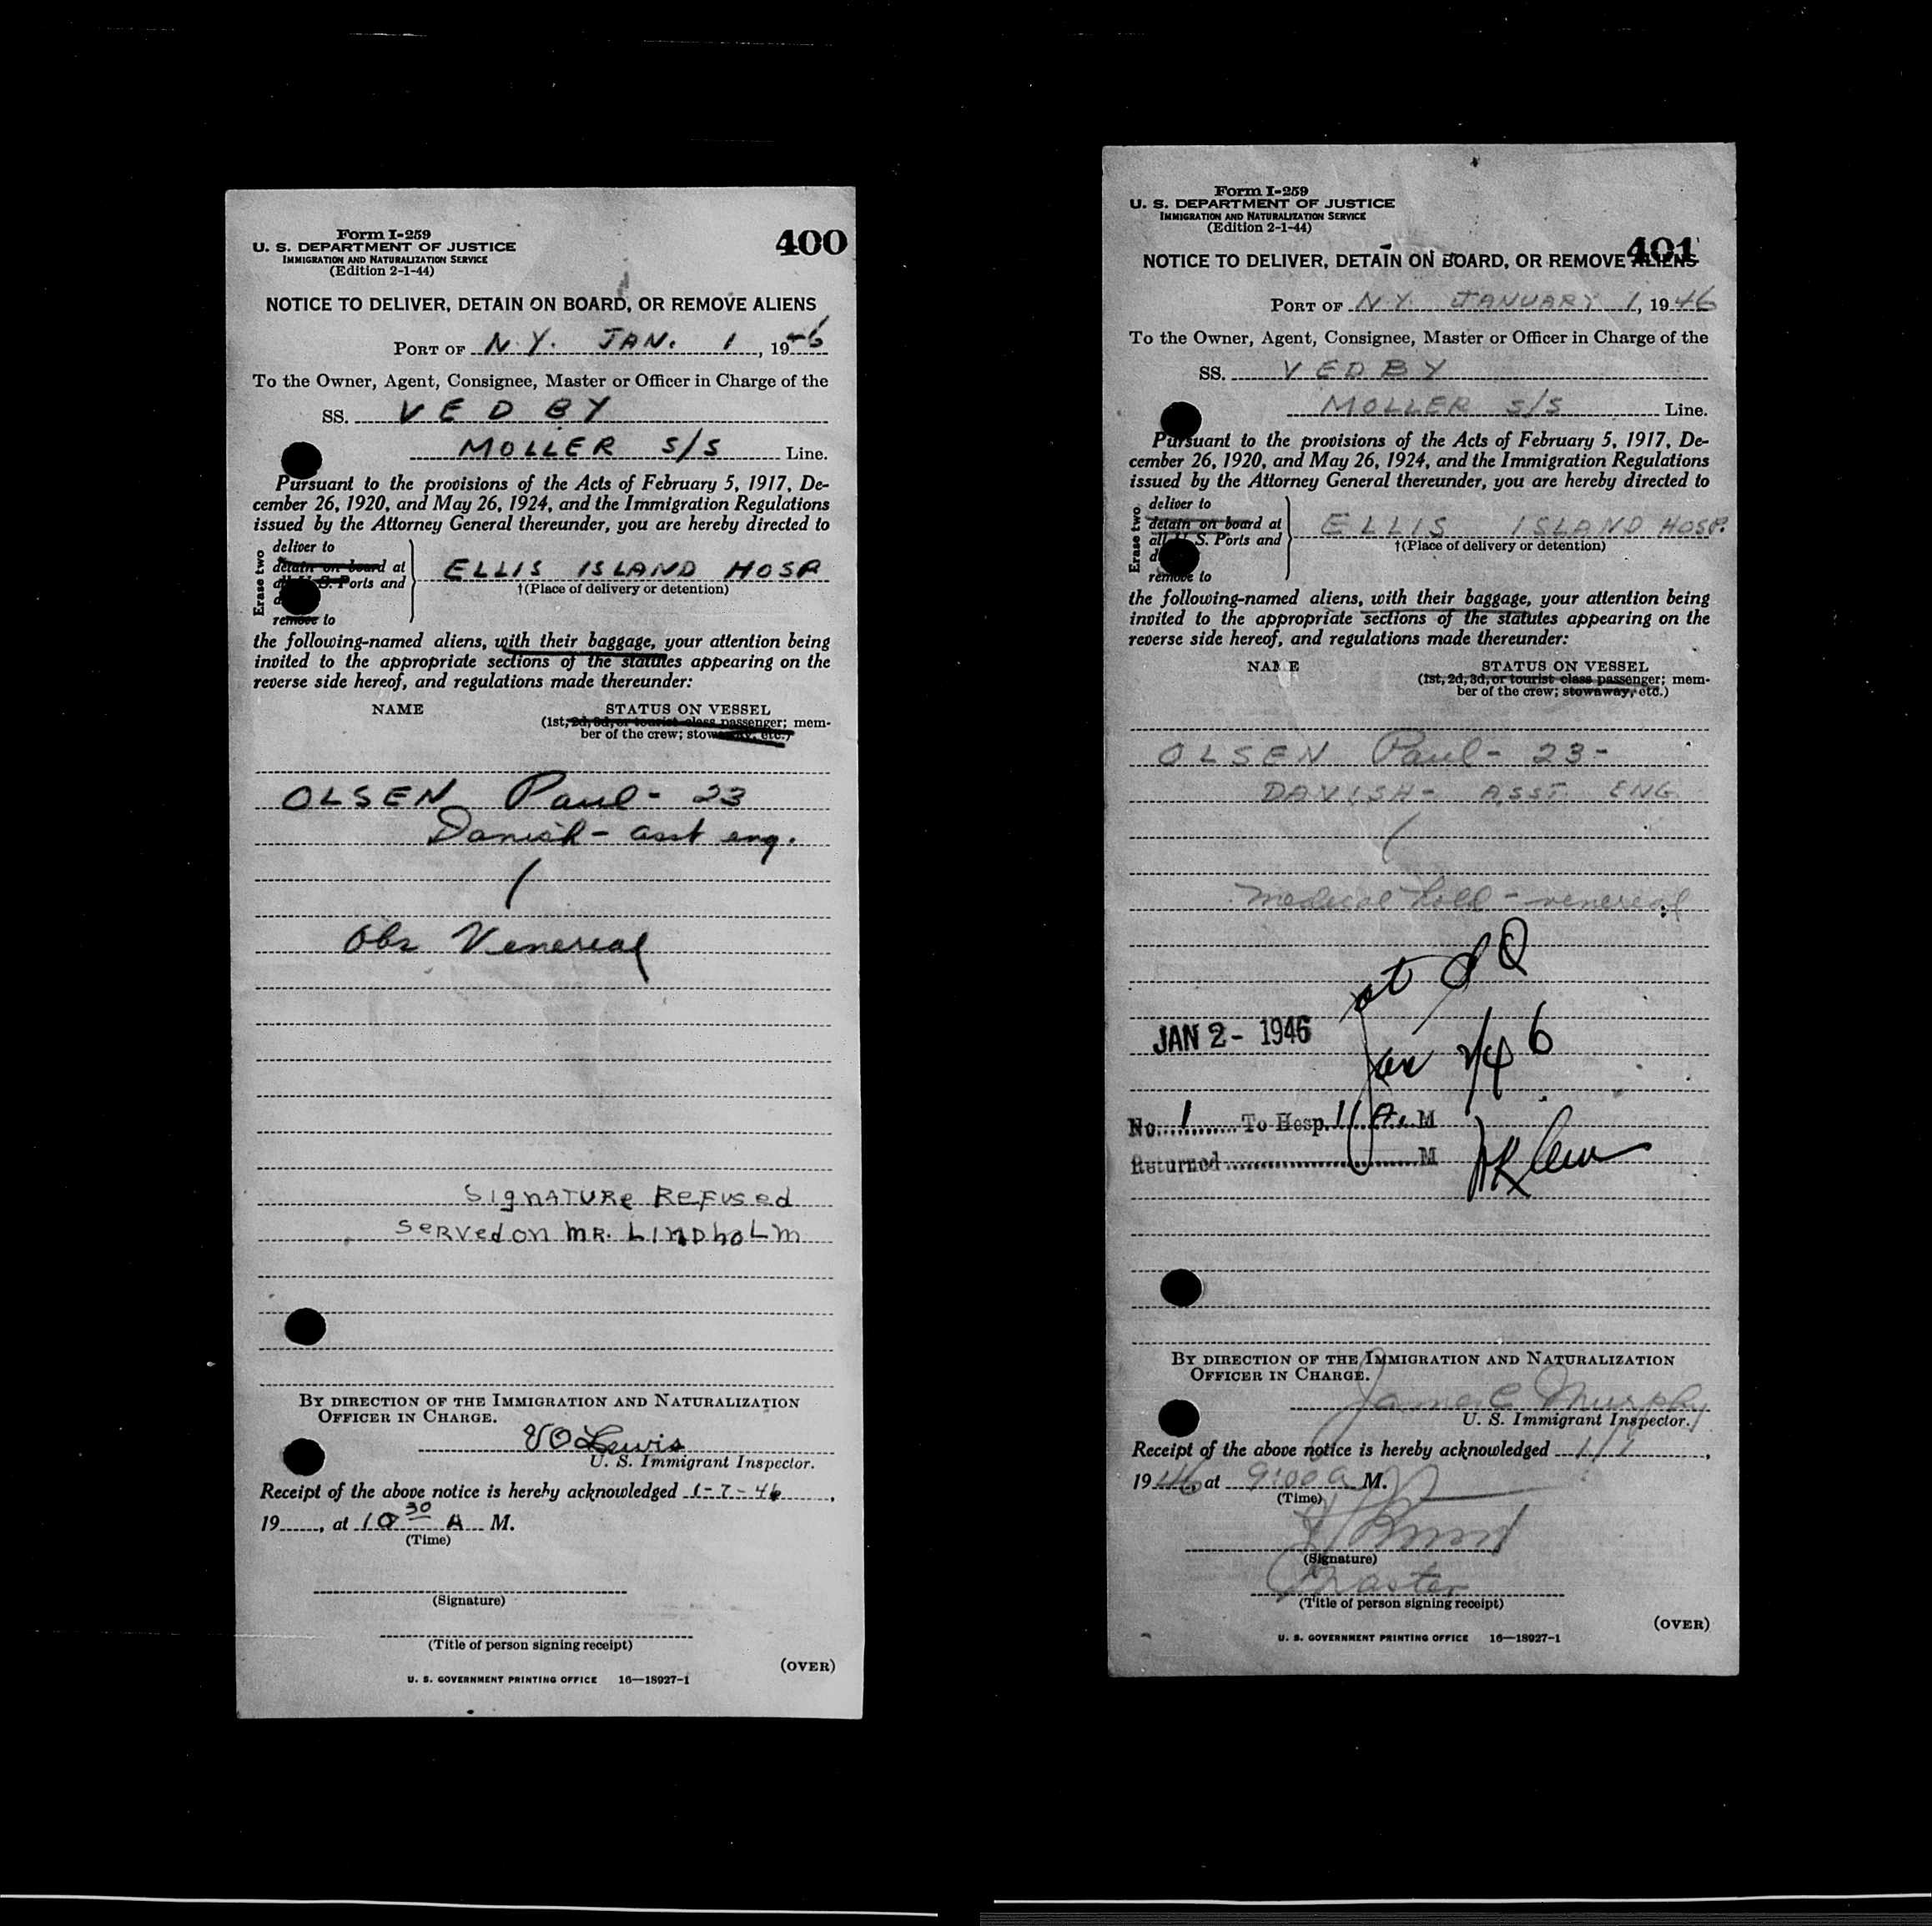 Form I-259
U. S. DEPARTMENT OF JUSTICE
IMMIGRATION AND NATURALIZATION SERVICE
(Edition 2-1-44)
400
NOTICE TO DELIVER, DETAIN ON BOARD, OR REMOVE ALIENS
PORT OF N.Y. JAN. 1, 1946
To the Owner, Agent, Consignee, Master or Officer in Charge of the
SS. VEDBY
MOLLER S/S Line.
Pursuant to the provisions of the Acts of February 5, 1917, De-
cember 26, 1920, and May 26, 1924, and the Immigration Regulations
issued by the Attorney General thereunder, you are hereby directed to
Erase two
deliver to
detain on board at
U. S. Ports and
remove to
ELLIS ISLAND HOSP
†(Place of delivery or detention)
the following-named aliens, with their baggage, your attention being
invited to the appropriate sections of the statutes appearing on the
reverse side hereof, and regulations made thereunder:
NAME
STATUS ON VESSEL
(1st, 2d, 3d, or tourist class passenger; mem-
ber of the crew; stowaway, etc.)
OLSEN Paul - 23
Danish - asst eng.
Obs Venereal
SIgnATURe ReFUSed
SeRVed on MR. LINDhoLm
BY DIRECTION OF THE IMMIGRATION AND NATURALIZATION
OFFICER IN CHARGE.
VO Lewis
U. S. Immigrant Inspector.
Receipt of the above notice is hereby acknowledged 1-7-46,
19, at 10 30 A M.
(Time)
(Signature)
(Title of person signing receipt)
(OVER)
U. S. GOVERNMENT PRINTING OFFICE 16—18927-1
Form I-259
U. S. DEPARTMENT OF JUSTICE
IMMIGRATION AND NATURALIZATION SERVICE
(Edition 2-1-44)
401
NOTICE TO DELIVER, DETAIN ON BOARD, OR REMOVE ALIENS
PORT OF N.Y. JANUARY 1, 1946
To the Owner, Agent, Consignee, Master or Officer in Charge of the
SS. VEDBY
MOLLER S/S Line.
Pursuant to the provisions of the Acts of February 5, 1917, De-
cember 26, 1920, and May 26, 1924, and the Immigration Regulations
issued by the Attorney General thereunder, you are hereby directed to
Erase two
deliver to
detain on board at
all U. S. Ports and
remove to
ELLIS ISLAND HOSP.
†(Place of delivery or detention)
the following-named aliens, with their baggage, your attention being
invited to the appropriate sections of the statutes appearing on the
reverse side hereof, and regulations made thereunder:
NAME
STATUS ON VESSEL
(1st, 2d, 3d, or tourist class passenger; mem-
ber of the crew; stowaway, etc.)
OLSEN Paul - 23 -
DANISH - ASST. ENG
Medical hold - venereal
JAN 2 - 1946
No. 1 To Hosp. 11 A. M
Returned M
BY DIRECTION OF THE IMMIGRATION AND NATURALIZATION
OFFICER IN CHARGE.
James C Murphy
U. S. Immigrant Inspector.
Receipt of the above notice is hereby acknowledged 1/1,
1946, at 9:00 a M.
(Time)
(Signature)
Master
(Title of person signing receipt)
(OVER)
U. S. GOVERNMENT PRINTING OFFICE 16—18927-1